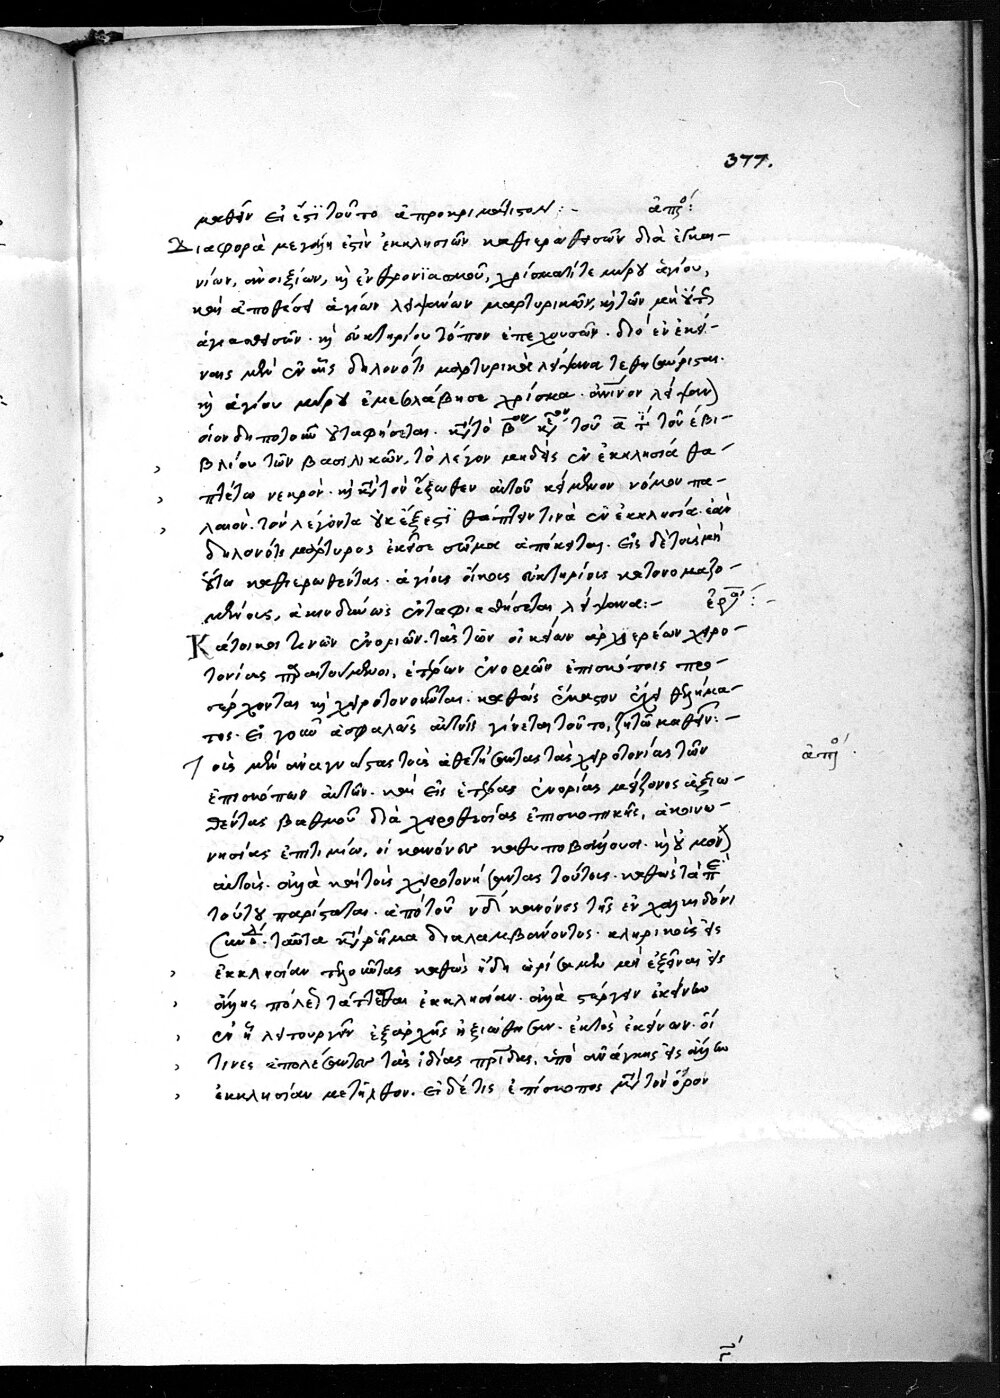 377.
μαθεῖν εἰ ἔξεστι τοῦτο ἀπροκριματίστως:- ἀπό:
Διαφορὰ μεγάλη ἐστὶν ἐκκλησιῶν καθιερωθεισῶν διὰ ἐγκαι-
νίων, ἀνοιξίων, καὶ ἐνθρονϊασμοῦ, χρίσματός τε μύρου ἁγίου,
καὶ ἀποθέσεως ἁγίων λειψάνων μαρτυρικῶν, καὶ τῶν μὴ οὕτως
ἁγιασθεισῶν. καὶ εὐκτηρίου τόπον ἐπεχουσῶν. διὸ ἐν ἐκεί-
ναις μὲν ἐν αἷς δηλονότι μαρτυρικὰ λείψανα τεθησαύρισται.
καὶ ἁγίου μύρου ἐμεσολάβησε χρίσμα. ἀνθρώπινον λείψανον
οἱονδηποτοῦν οὐ ταφήσεται. κατὰ τὸ β̅ον κε τοῦ α̅ τι τοῦ ε βι-
βλίου τῶν βασιλικῶν, τὸ λέγον μηδεὶς ἐν ἐκκλησίᾳ θα-
πτέτω νεκρόν. καὶ κατὰ τὸν ἔξωθεν αὐτοῦ κείμενον νόμον πα-
λαιὸν. τὸν λέγοντα οὐκ ἔξεστι θάπτειν τινὰ ἐν ἐκκλησίᾳ. ἐὰν
δηλονότι μάρτυρος ἐκεῖσε σῶμα ἀπόκειται. εἰς δὲ τοὺς μὴ
οὕτω καθιερωθέντας. ἁγίους οἴκους εὐκτηρίους κατονομαζο-
μένους, ἀκινδύνως ἐνταφιασθήσεται λείψανα:- ἐρώ:-
Κάτοικοι τινῶν ἐνοριῶν. τὰς τῶν οἰκείων ἀρχιερέων χειρο-
τονίας παραιτούμενοι, ἑτέρων ἐνοριῶν ἐπισκόποις προ-
σέρχονται καὶ χειροτονοῦνται. καθὼς ἕκαστον ἔχει θελήμα-
τος. εἰ γοῦν ἀσφαλῶς αὐτοῖς γίνεται τοῦτο, ζητῶ μαθεῖν:-
Τοὺς μὲν ἀναγνώστας τοὺς ἀθετήσαντας τὰς χειροτονίας τῶν ἀπό.
ἐπισκόπων αὐτῶν. καὶ εἰς ἑτέρας ἐνορίας μείζονος ἀξιω-
θέντας βαθμοῦ διὰ χειροθεσίας ἐπισκοπικῆς, ἀκοινω-
νησίας ἐπιτιμίῳ, οἱ κανόνες καθυποβάλλουσι. καὶ οὐ μόνον
αὐτοὺς. ἀλλὰ καὶ τοὺς χειροτονήσαντας τούτους. καθὼς τὰ περὶ
τούτου παρίσταται. ἀπὸ τοῦ κανόνος τῆς ἐν χαλκηδόνι
συνόδου. ταῦτα κατὰ ῥῆμα διαλαμβάνοντος. κληρικοὺς εἰς
ἐκκλησίαν τελοῦντας καθὼς ἤδη ὡρίσαμεν μὴ ἐξεῖναι εἰς
ἄλλης πόλεως τάττεσθαι ἐκκλησίαν. ἀλλὰ στέργειν ἐκείνην
ἐν ᾗ λειτουργεῖν ἐξαρχῆς ἠξιώθησαν. ἐκτὸς ἐκείνων. οἵ
τινες ἀπολέσαντες τὰς ἰδίας πατρίδας, ὑπὸ ἀνάγκης εἰς ἄλλην
ἐκκλησίαν μετῆλθον. εἰ δέ τις ἐπίσκοπος μετὰ τὸν ὅρον